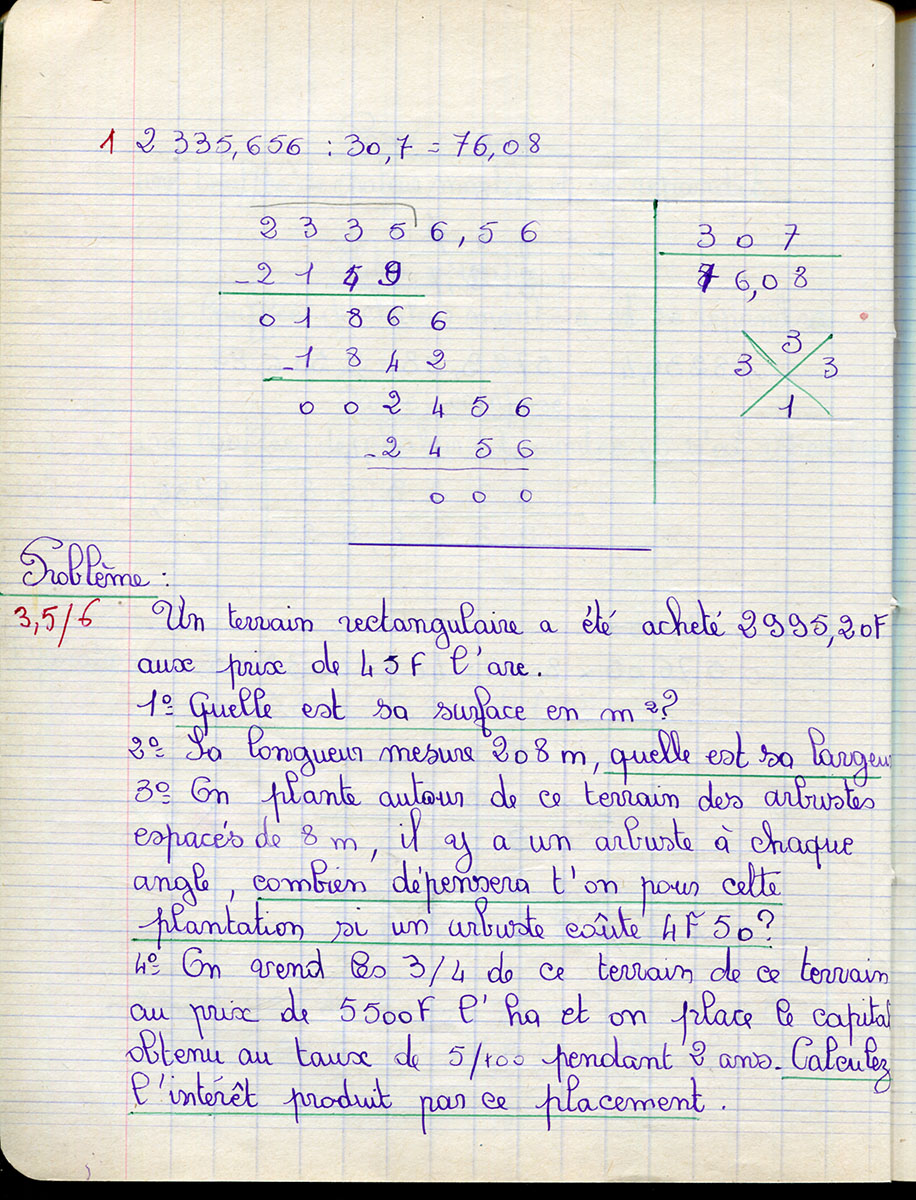 1 2 335,656 : 30,7 = 76,08
2 3 3 5 6,5 6 3 0 7
- 2 1 4 9 7 6,0 8
0 1 8 6 6
- 1 8 4 2
3 3 3
1
0 0 2 4 5 6
- 2 4 5 6
0 0 0
Problème :
3,5/6 Un terrain rectangulaire a été acheté 2995,20F
aux prix de 45F l'are.
1º Quelle est sa surface en m²?
2º Sa longueur mesure 208 m, quelle est sa largeu
3º On plante autour de ce terrain des arbustes
espacés de 8 m, il y a un arbuste à chaque
angle, combien dépensera t'on pour cette
plantation si un arbuste coûte 4F50?
4º On vend les 3/4 de ce terrain de ce terrain
au prix de 5500F l'ha et on place le capital
obtenu au taux de 5/100 pendant 2 ans. Calculez
l'intérêt produit par ce placement.